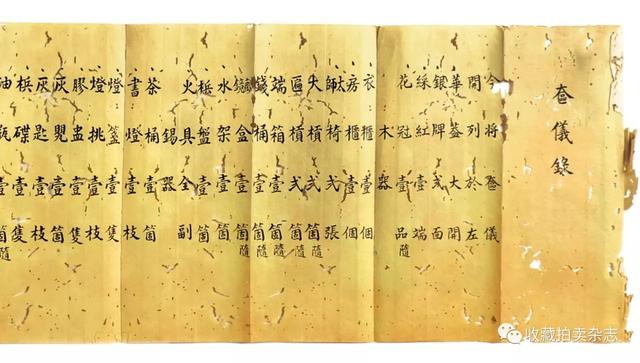 奩儀錄
今將奩儀
開列於左
華筵大開
銀牌弍面
綵紅壹端
花冠壹品隨
木器
衣櫃壹個
房櫃壹個
太師椅弍張
大槓弍箇隨
匾槓弍箇隨
端箱壹箇隨
錢桶壹箇隨
鏡盒壹箇隨
水架壹箇
盤壹箇
火具全副
錫器
茶桶壹箇
書燈壹枝
燈盞壹隻
燈挑壹枝
膠盅壹隻
灰壹箇
灰匙壹枝
碟壹隻
油瓶壹箇隨
收藏拍卖杂志